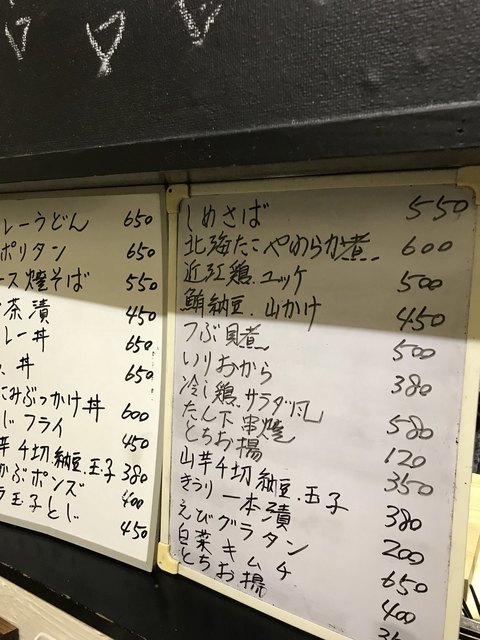 レーうどん 650
ポリタン 650
ース焼そば 550
茶漬 450
レー丼 650
丼 650
こみぶっかけ丼 600
じフライ 450
芋千切.納豆.玉子 380
かぶポンズ 400
玉子とじ 450
しめさば 550
北海たこやわらか煮 600
近江鶏.ユッケ 500
鮪納豆.山かけ 450
つぶ貝煮 500
いりおから 380
冷し鶏.サラダ風 580
たん下串焼 120
とちお揚 350
山芋千切.納豆.玉子 380
きうり一本漬 200
えびグラタン 650
白菜キムチ 400
とちお揚